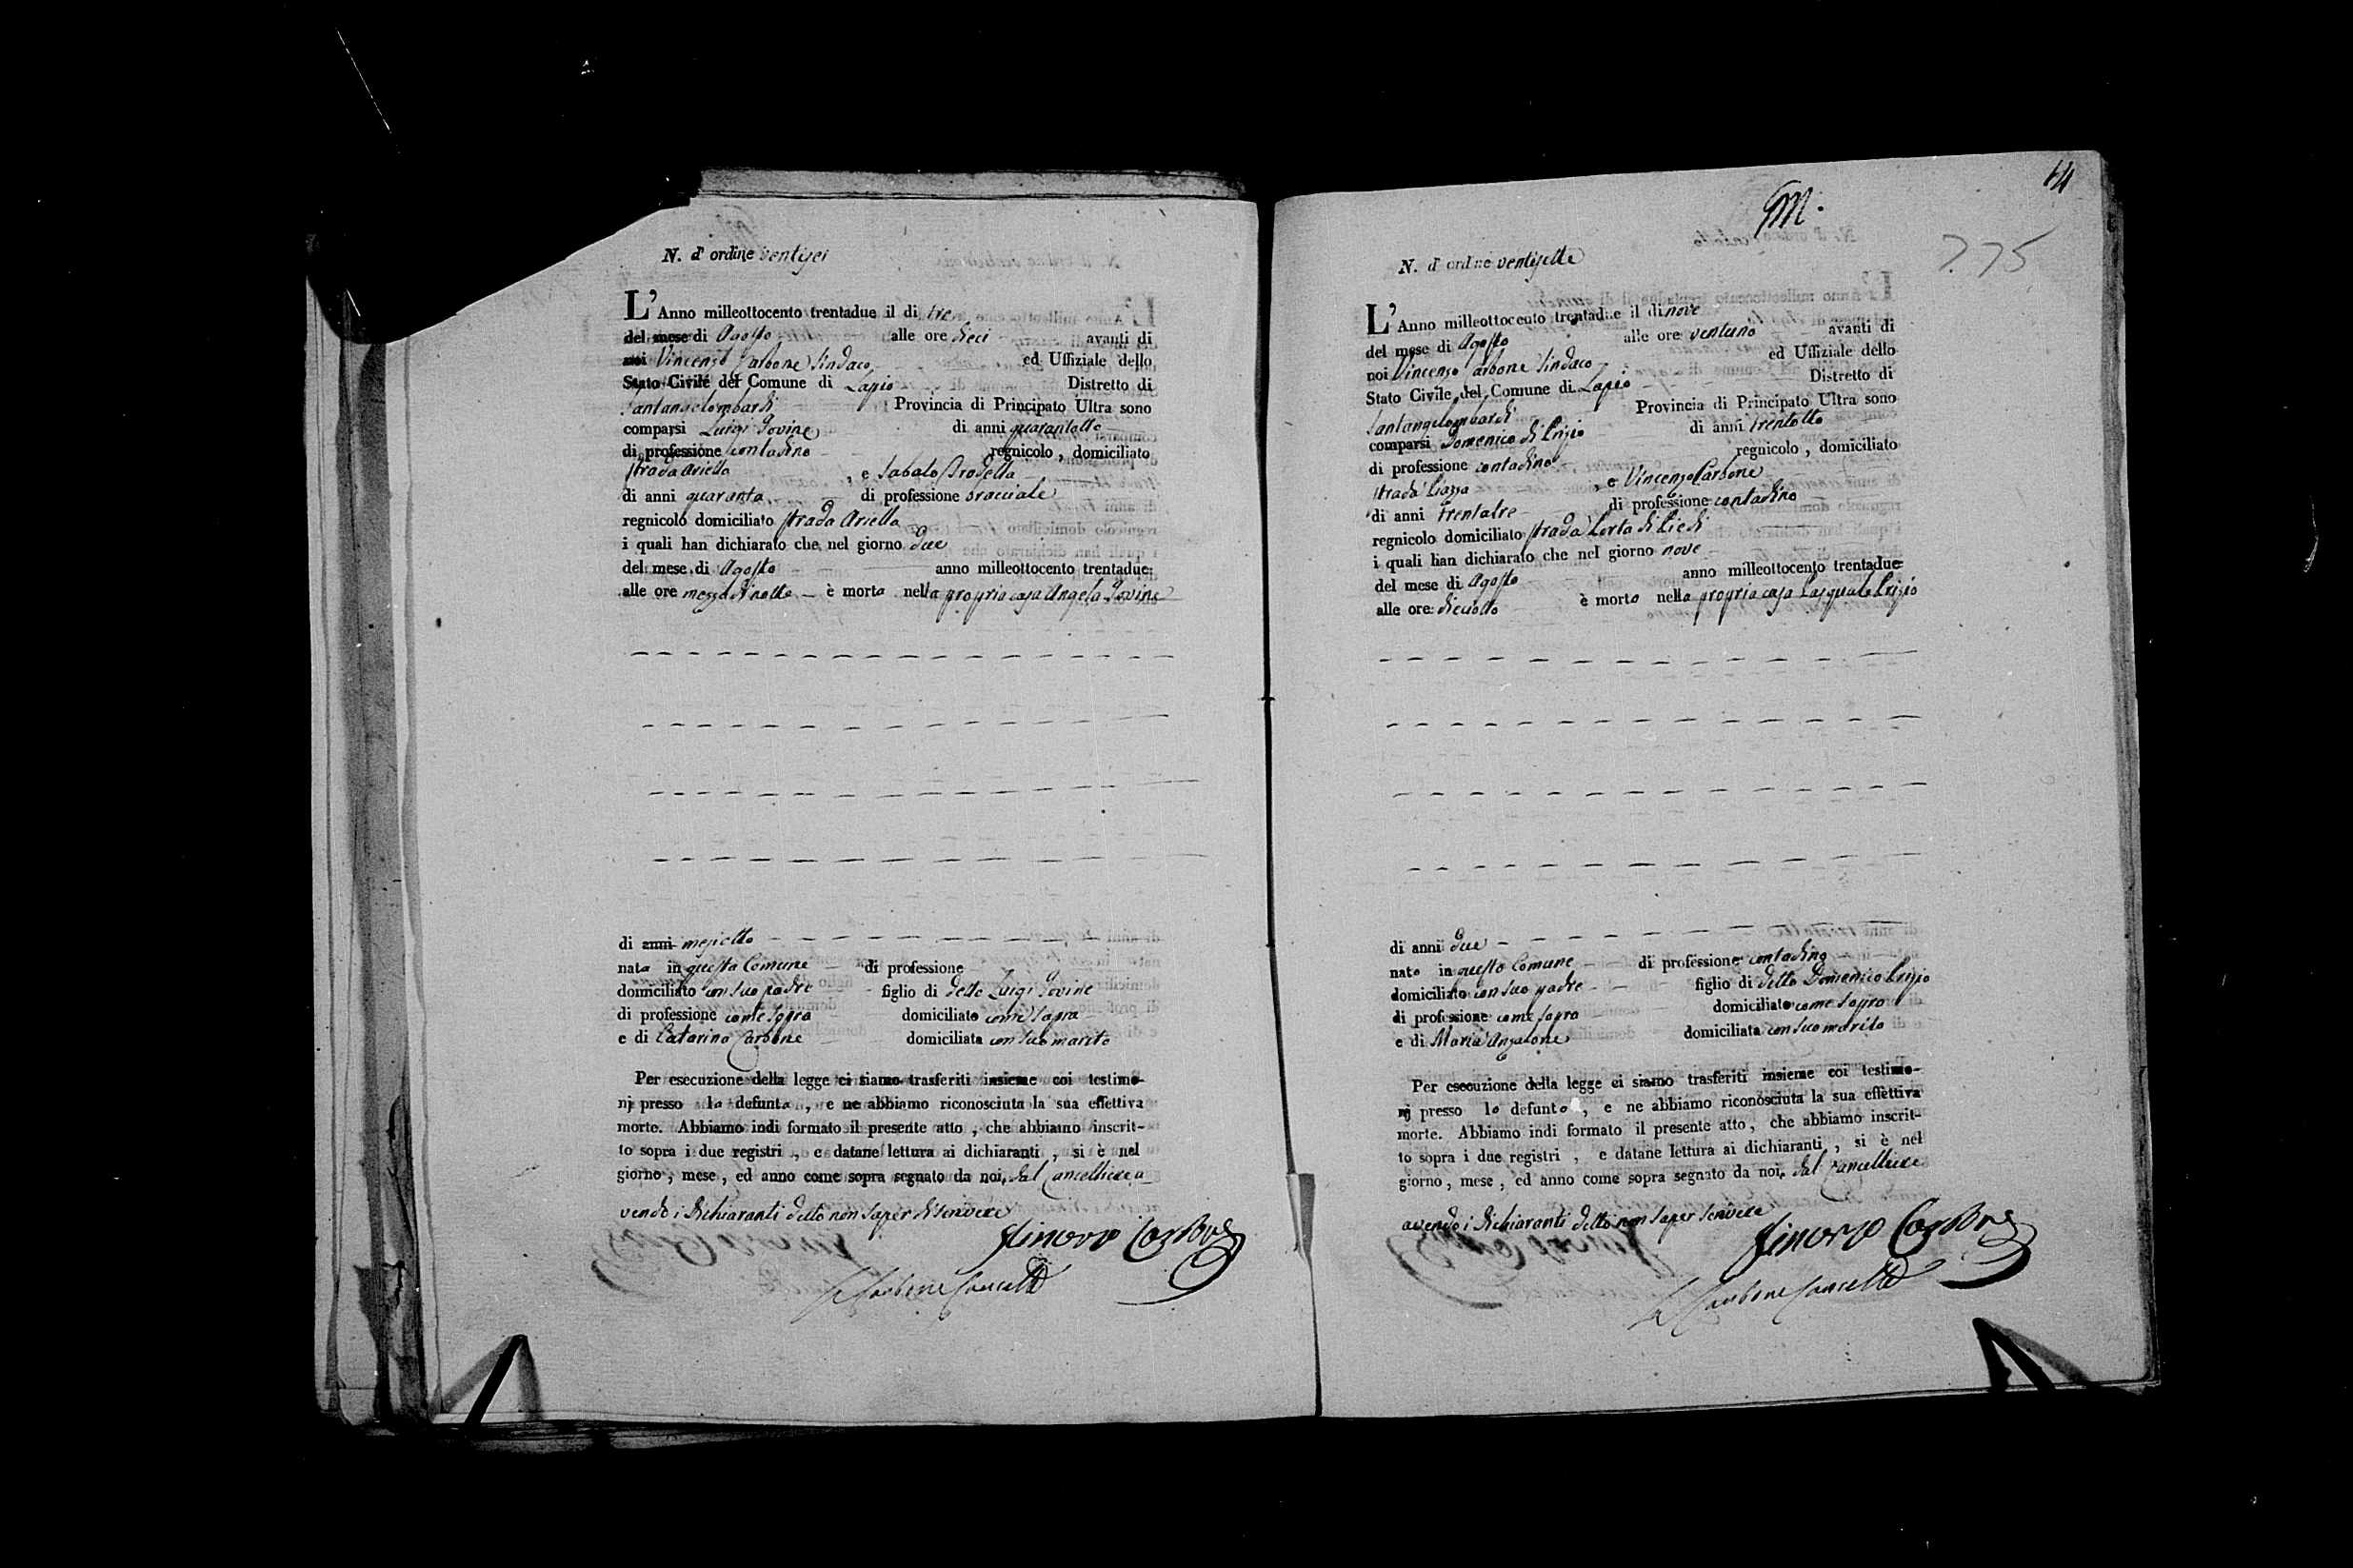 N. d' ordine ventisei
L'Anno milleottocento trentadue il di tre
del mese di Agosto alle ore dieci avanti di
noi Vincenzo Carbone Sindaco ed Uffiziale dello
Stato Civile del Comune di Lapio Distretto di
Santangelombardi Provincia di Principato Ultra sono
comparsi Luigi Iovine di anni quarantotto
di professione contadino regnicolo, domiciliato
strada Ariella, e Sabato Brosella
di anni quaranta di professione bracciale
regnicolo domiciliato strada Ariella
i quali han dichiarato che nel giorno due
del mese di Agosto anno milleottocento trentadue
alle ore mezza di notte è morta nella propria casa Angela Iovine
di anni mesi otto
nata in questa Comune di professione
domiciliato con suo padre figlio di detto Luigi Iovine
di professione come sopra domiciliato come sopra
e di Catarina Carbone domiciliata con suo marito
Per esecuzione della legge ci siamo trasferiti insieme coi testimo-
nj presso la defunta, e ne abbiamo riconosciuta la sua effettiva
morte. Abbiamo indi formato il presente atto, che abbiamo inscrit-
to sopra i due registri, e datane lettura ai dichiaranti, si è nel
giorno, mese, ed anno come sopra segnato da noi, dal Cancelliere a
vendo i dichiaranti detto non saper di scrivere
Carbone
Carbone Cancell
14
M.
775
N. d' ordine ventisette
L'Anno milleottocento trentadue il di nove
del mese di Agosto alle ore ventuno avanti di
noi Vincenzo Carbone Sindaco ed Uffiziale dello
Stato Civile del Comune di Lapio Distretto di
Santangelombardi Provincia di Principato Ultra sono
comparsi Domenico di Prizio di anni trentotto
di professione contadino regnicolo, domiciliato
strada Piazza, e Vincenzo Carbone
di anni trentatre di professione contadino
regnicolo domiciliato strada Porta di Piedi
i quali han dichiarato che nel giorno nove
del mese di Agosto anno milleottocento trentadue
alle ore dieciotto è morto nella propria casa Pasquale Prizio
di anni due
nato in questo Comune di professione contadino
domiciliato con suo padre figlio di detto Domenico Prizio
di professione come sopra domiciliato come sopra
e di Maria Anzalone domiciliata con suo marito
Per esecuzione della legge ci siamo trasferiti insieme coi testimo-
nj presso lo defunto, e ne abbiamo riconosciuta la sua effettiva
morte. Abbiamo indi formato il presente atto, che abbiamo inscrit-
to sopra i due registri, e datane lettura ai dichiaranti, si è nel
giorno, mese, ed anno come sopra segnato da noi, dal Cancelliere
avendo i dichiaranti detto non saper scrivere
Carbone
Carbone Cancell